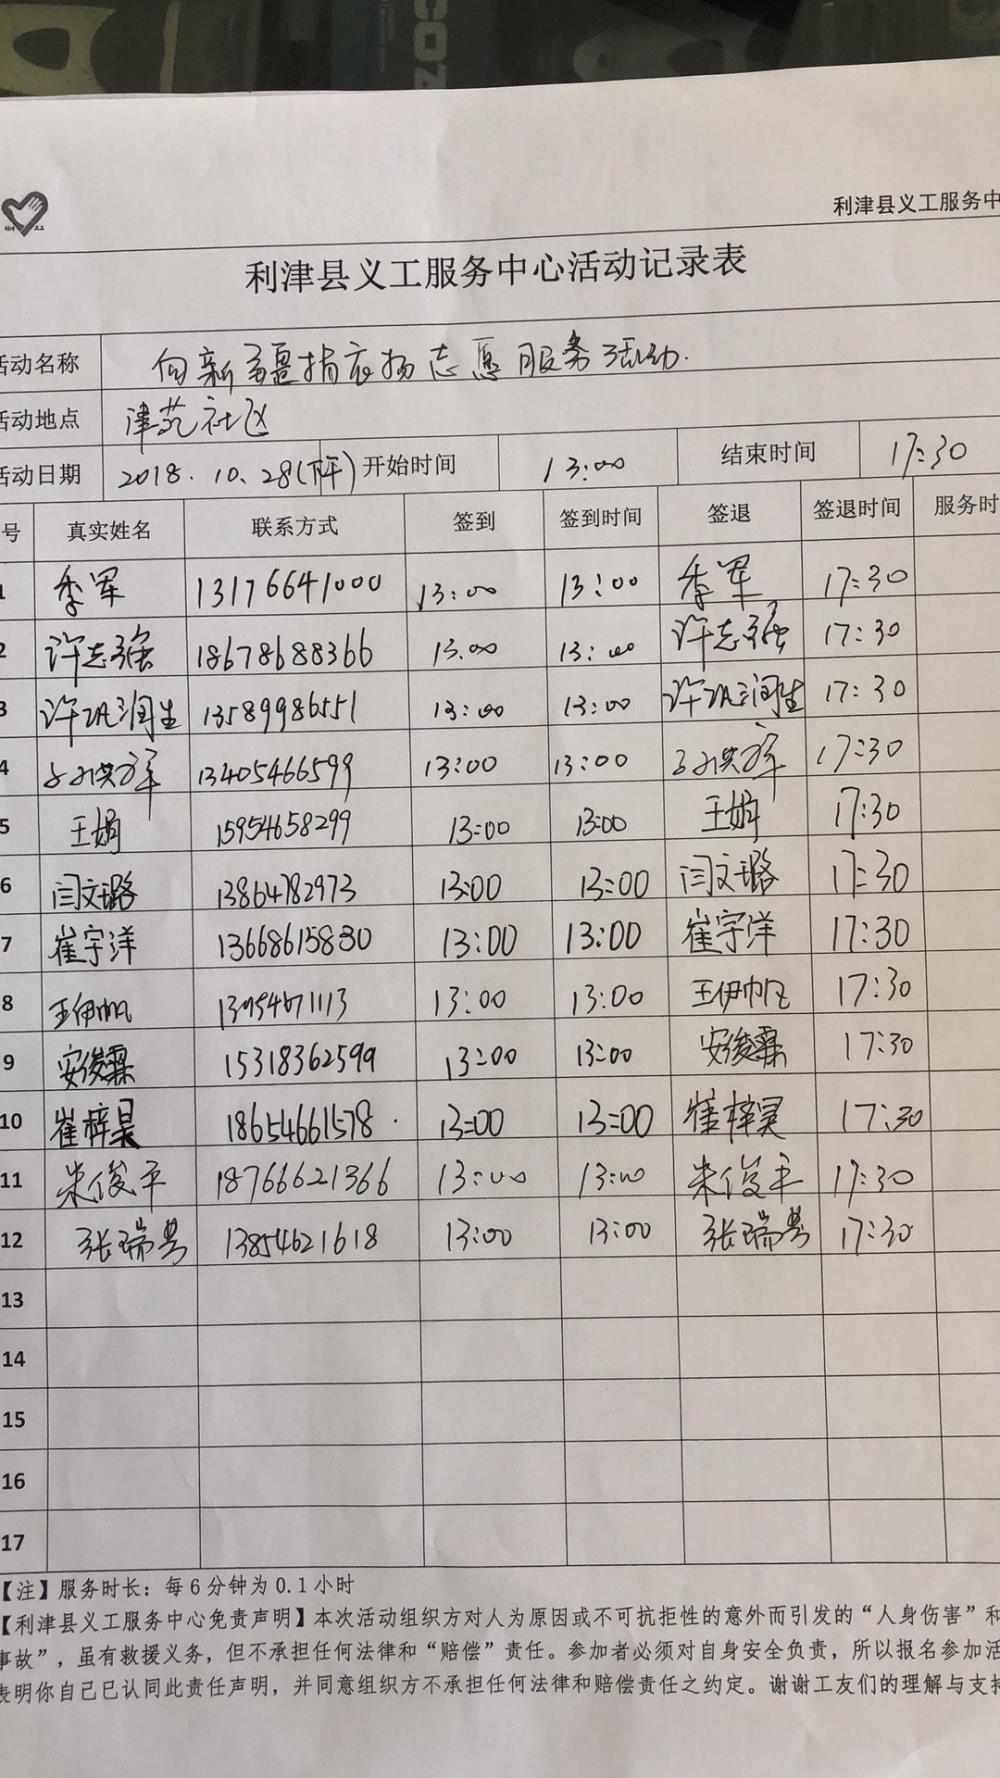 COZ
利津县义工服务中
利津县义工服务中心活动记录表
活动名称 向新疆捐衣物志愿服务活动.
活动地点 津苑社区
活动日期 2018.10.28(下午) 开始时间 13:00 结束时间 17:30
号 真实姓名 联系方式 签到 签到时间 签退 签退时间 服务时
1 季军 13176641000 13:00 13:00 季军 17:30
2 许志强 18678688366 13:00 13:00 许志强 17:30
3 许巩润生 13589986551 13:00 13:00 许巩润生 17:30
4 13405466599 13:00 13:00 17:30
5 王娟 15954658299 13:00 13:00 王娟 17:30
6 闫文璐 13864782973 13:00 13:00 闫文璐 17:30
7 崔宇洋 13668615830 13:00 13:00 崔宇洋 17:30
8 王伊帆 13954671113 13:00 13:00 王伊帆 17:30
9 安俊霖 15318362599 13:00 13:00 安俊霖 17:30
10 崔梓昊 18654661578 13:00 13:00 崔梓昊 17:30
11 朱俊平 18766621366 13:00 13:00 朱俊平 17:30
12 张瑞 13854621618 13:00 13:00 张瑞 17:30
13
14
15
16
17
【注】服务时长：每6分钟为0.1小时
【利津县义工服务中心免责声明】本次活动组织方对人为原因或不可抗拒性的意外而引发的“人身伤害”和
事故”，虽有救援义务，但不承担任何法律和“赔偿”责任。参加者必须对自身安全负责，所以报名参加活
表明你自己已认同此责任声明，并同意组织方不承担任何法律和赔偿责任之约定。谢谢工友们的理解与支持